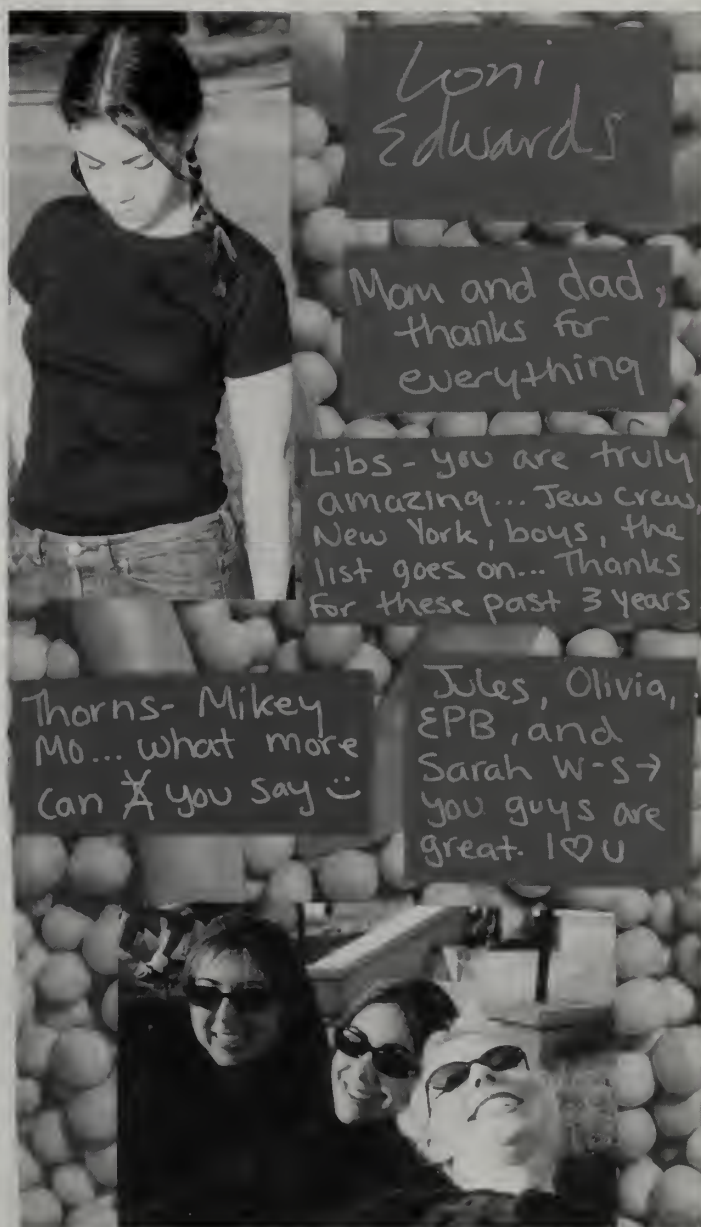 Loni
Edwards
Mom and dad,
thanks for
everything
Libs - you are truly
amazing... Jew crew,
New York, boys, the
list goes on... Thanks
for these past 3 years
Thorns - Mikey
Mo... what more
can you say
Jules, Olivia,
EPB, and
Sarah W-S →
you guys are
great. I ♡ U